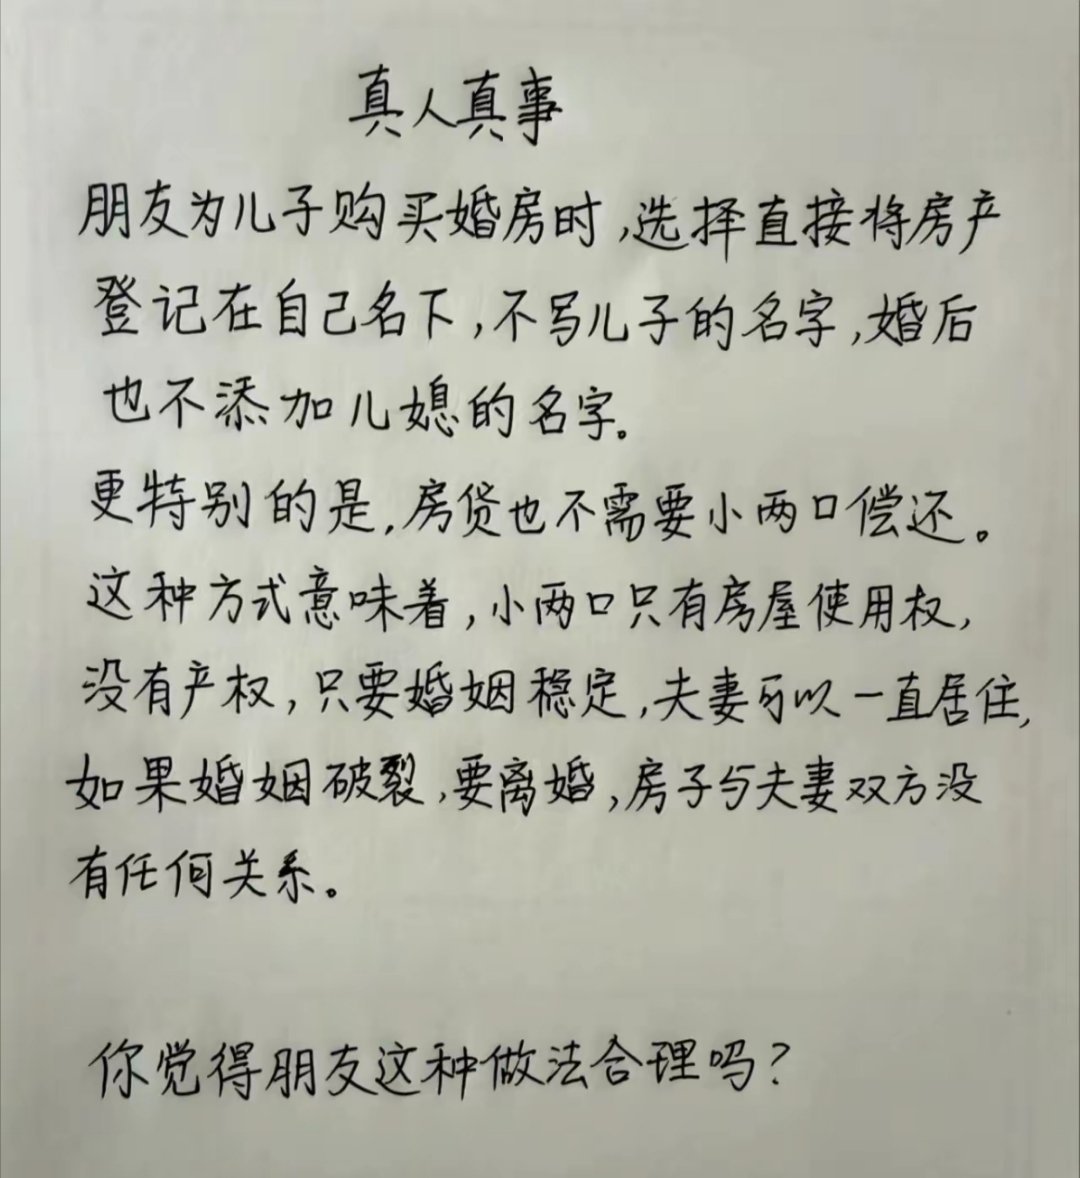 真人真事
朋友为儿子购买婚房时,选择直接将房产
登记在自己名下,不写儿子的名字,婚后
也不添加儿媳的名字。
更特别的是,房贷也不需要小两口偿还。
这种方式意味着,小两口只有房屋使用权,
没有产权,只要婚姻稳定,夫妻可以一直居住,
如果婚姻破裂,要离婚,房子与夫妻双方没
有任何关系。
你觉得朋友这种做法合理吗?